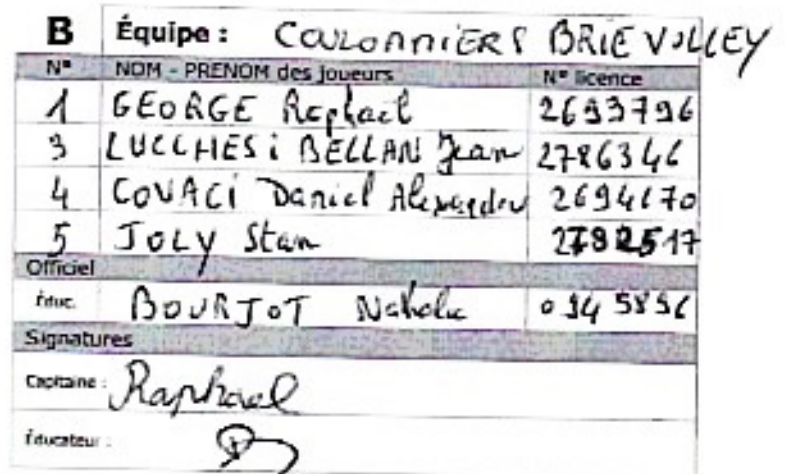 B Équipe : COULOMMIERS BRIE VOLLEY
N° NOM - PRENOM des joueurs N° licence
1 GEORGE Raphael 2693796
3 LUCCHESi BELLAN Jean 2786346
4 COVACi Daniel Alexandru 2694170
5 JOLY Stan
Officiel
Éduc. BOURJOT
Signatures
Capitaine : Raphael
Éducateur :